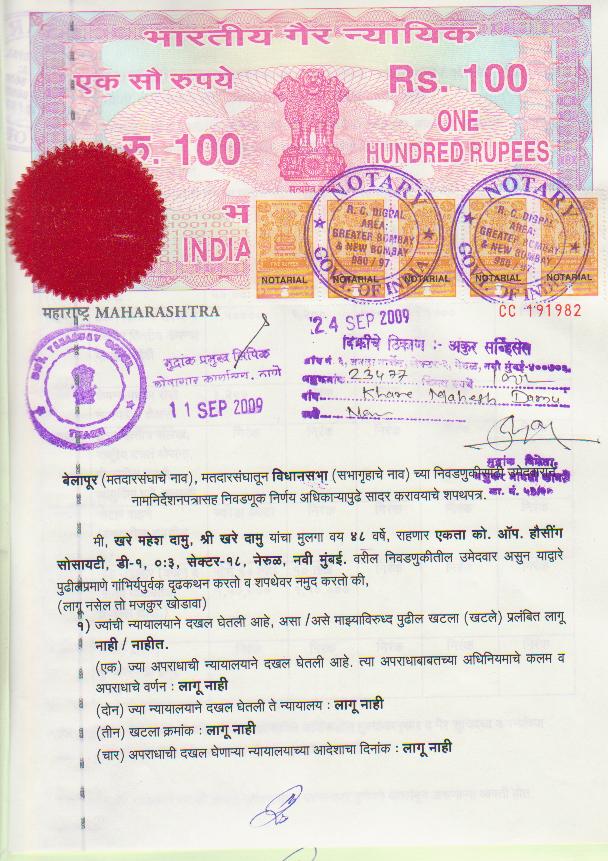 भारतीय गैर न्यायिक
एक सौ रुपये
Rs. 100
रु. 100
ONE
HUNDRED RUPEES
सत्यमेव जयते
भ
INDIA
NOTARY
R. C. DIGPAL
AREA:
GREATER BOMBAY
& NEW BOMBAY
980 / 97
GOVT. OF INDIA
NOTARY
R. C. DIGPAL
AREA:
GREATER BOMBAY
& NEW BOMBAY
980 / 97
GOVT. OF INDIA
NOTARIAL NOTARIAL NOTARIAL NOTARIAL NOTARIAL
महाराष्ट्र MAHARASHTRA
CC 191982
24 SEP 2009
विक्रीचे ठिकाण :- अंकुर सर्व्हिसेस
नवी मुंबई-४००७०६
23477
Khare Mahesh Damu
मुद्रांक प्रमुख लिपिक
कोषागार कार्यालय, ठाणे
11 SEP 2009
THANE
मुद्रांक विक्रेता
बेलापूर (मतदारसंघाचे नाव), मतदारसंघातून विधानसभा (सभागृहाचे नाव) च्या निवडणुकीसाठी उमेदवाराने
नामनिर्देशनपत्रासह निवडणूक निर्णय अधिकाऱ्यापुढे सादर करावयाचे शपथपत्र.
मी, खरे महेश दामु, श्री खरे दामु यांचा मुलगा वय ४८ वर्षे, राहणार एकता को. ऑप. हौसींग
सोसायटी, डी-१, ०:३, सेक्टर-१८, नेरुळ, नवी मुंबई. वरील निवडणुकीतील उमेदवार असुन याद्वारे
पुढीलप्रमाणे गांभिर्यपुर्वक दृढकथन करतो व शपथेवर नमुद करतो की,
(लागू नसेल तो मजकुर खोडावा)
१) ज्यांची न्यायालयाने दखल घेतली आहे, असा /असे माझ्याविरुध्द पुढील खटला (खटले) प्रलंबित लागू
नाही / नाहीत.
(एक) ज्या अपराधाची न्यायालयाने दखल घेतली आहे. त्या अपराधाबाबतच्या अधिनियमाचे कलम व
अपराधाचे वर्णन : लागू नाही
(दोन) ज्या न्यायालयाने दखल घेतली ते न्यायालय : लागू नाही
(तीन) खटला क्रमांक : लागू नाही
(चार) अपराधाची दखल घेणाऱ्या न्यायालयाच्या आदेशाचा दिनांक : लागू नाही